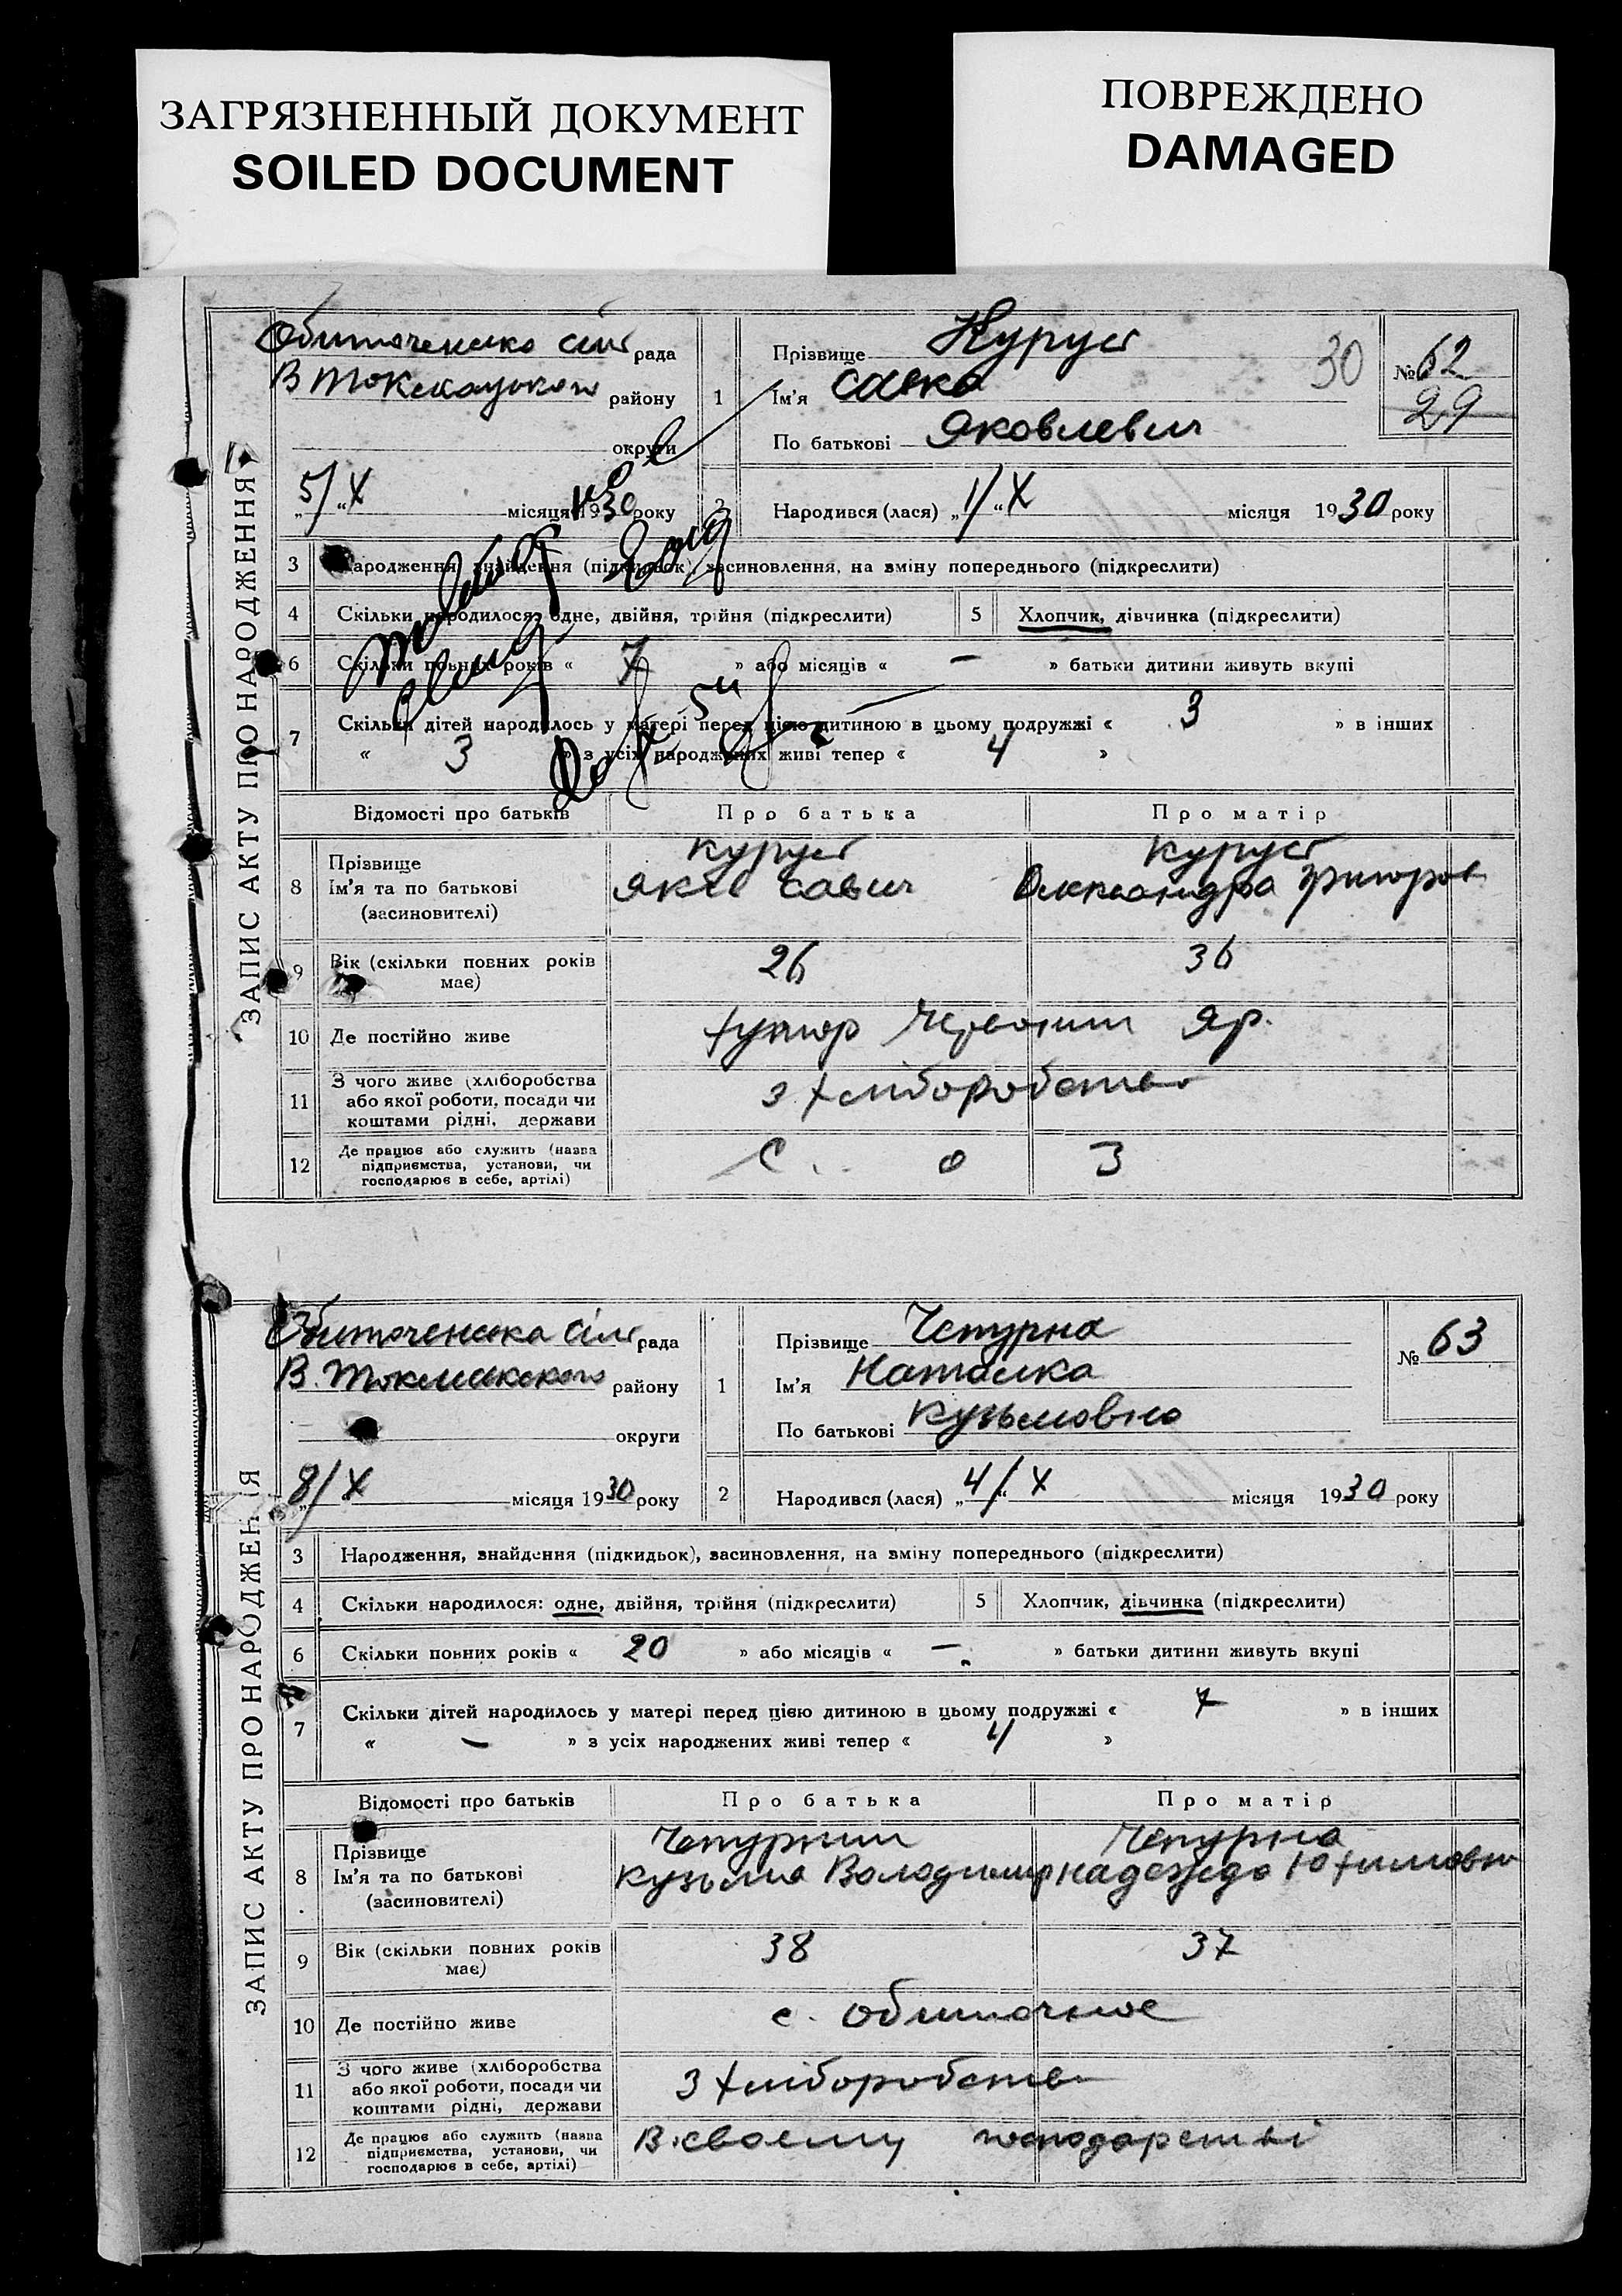 ЗАГРЯЗНЕННЫЙ ДОКУМЕНТ
SOILED DOCUMENT
ПОВРЕЖДЕНО
DAMAGED
ЗАПИС АКТУ ПРО НАРОДЖЕННЯ
Обиточенська сіл рада
В району
округи
5/X місяця 1930 року
1
Прізвище Куруст
Ім'я Савка
По батькові Яковлевич
30
№ 62
29
2
Народився (лася) „1/“ X місяця 1930 року
3 Народження, знайдення (підкидьок), засиновлення, на зміну попереднього (підкреслити)
4 Скільки народилося: одне, двійня, трійня (підкреслити)
5 Хлопчик, дівчинка (підкреслити)
6 Скільки повних років « 7 » або місяців « – » батьки дитини живуть вкупі
7 Скільки дітей народилось у матері перед цією дитиною в цьому подружжі « 3 » в інших
« 3 » з усіх народжених живі тепер « 4 »
Відомості про батьків Про батька Про матір
8 Прізвище
Ім'я та по батькові
(засиновителі)
Куруст
Яків Савич
Куруст
Олександра Григоров
9 Вік (скільки повних років має) 26 36
10 Де постійно живе хутор Червоний Яр.
11 З чого живе (хліборобства
або якої роботи, посади чи
коштами рідні, держави
з хліборобства
12 Де працює або служить (назва
підприємства, установи, чи
господарює в себе, артілі)
С. О З
ЗАПИС АКТУ ПРО НАРОДЖЕННЯ
Обиточенська сіл рада
В. Токмакского району
округи
8/X місяця 1930 року
1
Прізвище Чепурна
Ім'я Наталка
По батькові Кузьмовна
№ 63
2
Народився (лася) „4/“ X місяця 1930 року
3 Народження, знайдення (підкидьок), засиновлення, на зміну попереднього (підкреслити)
4 Скільки народилося: одне, двійня, трійня (підкреслити)
5 Хлопчик, дівчинка (підкреслити)
6 Скільки повних років « 20 » або місяців « – » батьки дитини живуть вкупі
7 Скільки дітей народилось у матері перед цією дитиною в цьому подружжі « 7 » в інших
« – » з усіх народжених живі тепер « 4 »
Відомості про батьків Про батька Про матір
8 Прізвище
Ім'я та по батькові
(засиновителі)
Чепурний
Кузьма Володимир
Чепурна
Надежда Юхимовна
9 Вік (скільки повних років має) 38 37
10 Де постійно живе с. Обиточное
11 З чого живе (хліборобства
або якої роботи, посади чи
коштами рідні, держави
З хліборобства
12 Де працює або служить (назва
підприємства, установи, чи
господарює в себе, артілі)
В своему господарстві